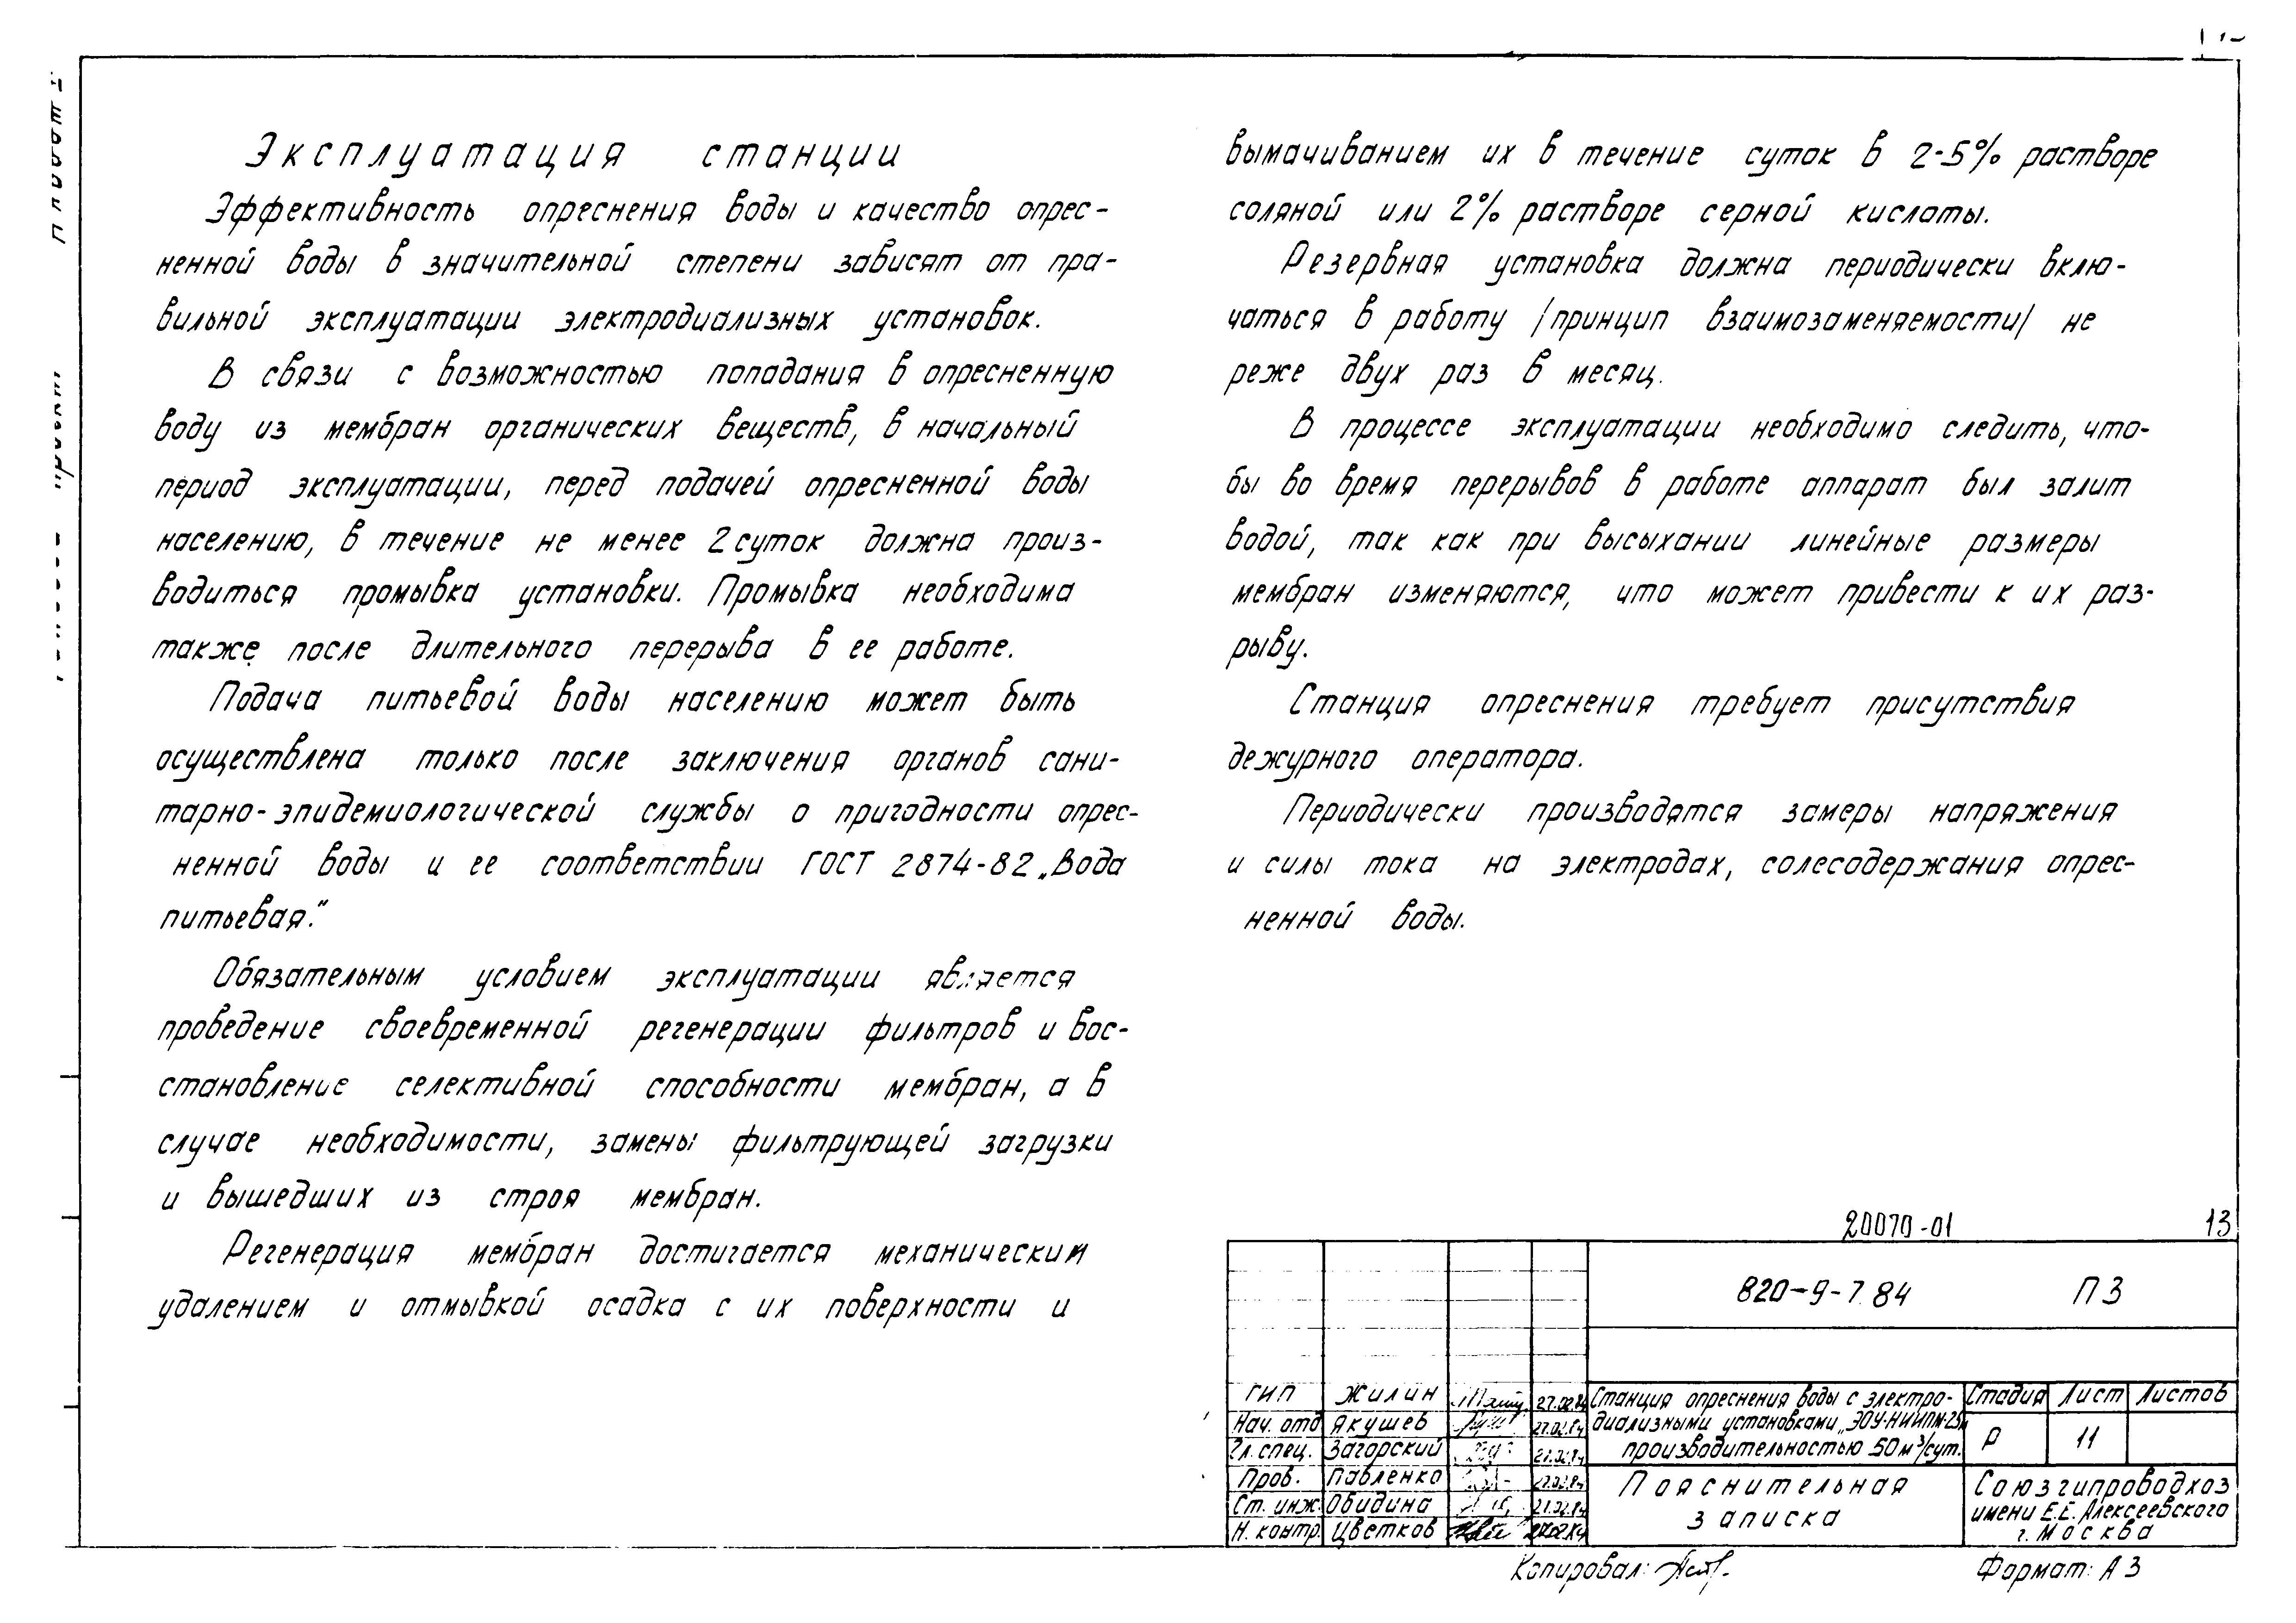 Эксплуатация станции
Эффективность опреснения воды и качество опрес-
ненной воды в значительной степени зависят от пра-
вильной эксплуатации электродиализных установок.
В связи с возможностью попадания в опресненную
воду из мембран органических веществ, в начальный
период эксплуатации, перед подачей опресненной воды
населению, в течение не менее 2 суток должна произ-
водиться промывка установки. Промывка необходима
также после длительного перерыва в ее работе.
Подача питьевой воды населению может быть
осуществлена только после заключения органов сани-
тарно-эпидемиологической службы о пригодности опрес-
ненной воды и ее соответствии ГОСТ 2874-82 „Вода
питьевая."
Обязательным условием эксплуатации является
проведение своевременной регенерации фильтров и вос-
становление селективной способности мембран, а в
случае необходимости, замены фильтрующей загрузки
и вышедших из строя мембран.
Регенерация мембран достигается механическим
удалением и отмывкой осадка с их поверхности и
вымачиванием их в течение суток в 2-5% растворе
соляной или 2% растворе серной кислоты.
Резервная установка должна периодически вклю-
чаться в работу /принцип взаимозаменяемости/ не
реже двух раз в месяц.
В процессе эксплуатации необходимо следить, что-
бы во время перерывов в работе аппарат был залит
водой, так как при высыхании линейные размеры
мембран изменяются, что может привести к их раз-
рыву.
Станция опреснения требует присутствия
дежурного оператора.
Периодически производятся замеры напряжения
и силы тока на электродах, солесодержания опрес-
ненной воды.
20070-01 13
820-9-7.84 ПЗ
ГИП Жилин 27.02.84
Нач. отд Якушев 27.02.84
Гл. спец. Загорский 27.02.84
Пров. Павленко 27.02.84
Ст. инж. Обидина 27.02.84
Н. контр. Цветков 27.02.84
Станция опреснения воды с электро-
диализными установками „ЭОУ-НИИПМ-25"
производительностью 50 м³/сут.
Стадия Лист Листов
Р 11
Пояснительная
записка
Союзгипроводхоз
имени Е.Е. Алексеевского
г. Москва
Копировал:
Формат: А3